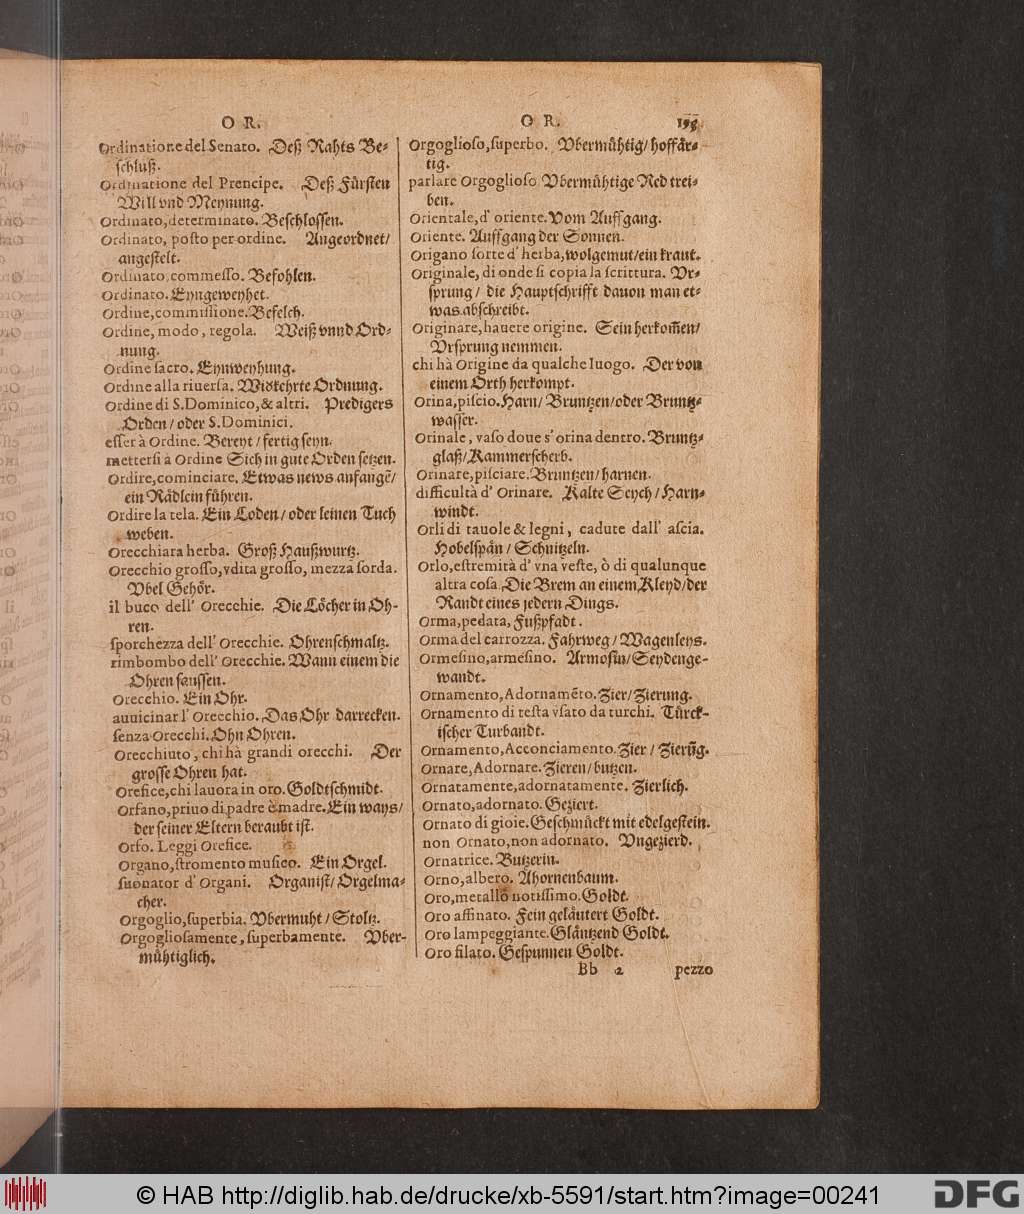 O R.
Ordinatione del Senato. Deß Rahts Be-
schluß.
Ordinatione del Prencipe. Deß Fürsten
Will vnd Meynung.
Ordinato, determinato. Beschlossen.
Ordinato, posto per ordine. Angeordnet/
angestelt.
Ordinato, commesso. Befohlen.
Ordinato. Eyngeweyhet.
Ordine, commissione. Befelch.
Ordine, modo, regola. Weiß vnnd Ord-
nung.
Ordine sacro. Eynweyhung.
Ordine alla riuersa. Widkehrte Ordnung.
Ordine di S. Dominico, & altri. Predigers
Orden/ oder S. Dominici.
esser à Ordine. Bereyt/ fertig seyn.
mettersi à Ordine Sich in gute Orden setzen.
Ordire, cominciare. Etwas news anfangẽ/
ein Rädlein führen.
Ordire la tela. Ein Loden/ oder leinen Tuch
weben.
Orecchiara herba. Groß Haußwurtz.
Orecchio grosso, vdita grosso, mezza sorda.
Vbel Gehör.
il buco dell' Orecchie. Die Löcher in Oh-
ren.
sporchezza dell' Orecchie. Ohrenschmaltz.
rimbombo dell' Orecchie. Wann einem die
Ohren saussen.
Orecchio. Ein Ohr.
auuicinar l' Orecchio. Das Ohr darrecken.
senza Orecchi. Ohn Ohren.
Orecchiuto, chi hà grandi orecchi. Der
grosse Ohren hat.
Orefice, chi lauora in oro. Goldtschmidt.
Orfano, priuo di padre è madre. Ein ways/
der seiner Eltern beraubt ist.
Orfo. Leggi Orefice.
Organo, stromento musico. Ein Orgel.
suonator d' Organi. Organist/ Orgelma-
cher.
Orgoglio, superbia. Vbermuht/ Stoltz.
Orgogliosamente, superbamente. Vber-
mühtiglich.
O R.
198
Orgoglioso, superbo. Vbermühtig/ hoffär-
tig.
parlare Orgoglioso. Vbermühtige Red trei-
ben.
Orientale, d' oriente. Vom Auffgang.
Oriente. Auffgang der Sonnen.
Origano sorte d' herba, wolgemut/ ein kraut.
Originale, di onde si copia la scrittura. Vr-
sprung/ die Hauptschrifft dauon man et-
was abschreibt.
Originare, hauere origine. Sein herkom̃en/
Vrsprung nemmen.
chi hà Origine da qualche luogo. Der von
einem Orth herkompt.
Orina, piscio. Harn/ Bruntzen/ oder Bruntz-
wasser.
Orinale, vaso doue s' orina dentro. Bruntz-
glaß/ Kammerscherb.
Orinare, pisciare. Bruntzen/ harnen.
difficultà d' Orinare. Kalte Seych/ Harn-
windt.
Orli di tauole & legni, cadute dall' ascia.
Hobelspän/ Schnitzeln.
Orlo, estremità d' vna veste, ò di qualunque
altra cosa Die Brem an einem Kleyd/ der
Randt eines jedern Dings.
Orma, pedata, Fußpfadt.
Orma del carrozza. Fahrweg/ Wagenleys.
Ormesino, armesino. Armosin/ Seydenge-
wandt.
Ornamento, Adornamẽto. Zier/ Zierung.
Ornamento di testa vsato da turchi. Türck-
ischer Turbandt.
Ornamento, Acconciamento. Zier/ Zierũg.
Ornare, Adornare. Zieren/ butzen.
Ornatamente, adornatamente. Zierlich.
Ornato, adornato. Geziert.
Ornato di gioie. Geschmückt mit edelgestein.
non Ornato, non adornato. Vngezierd.
Ornatrice. Butzerin.
Orno, albero. Ahornenbaum.
Oro, metallo notissimo. Goldt.
Oro affinato. Fein geläutert Goldt.
Oro lampeggiante. Gläntzend Goldt.
Oro filato. Gespunnen Goldt.
Bb 2 pezzo
© HAB http://diglib.hab.de/drucke/xb-5591/start.htm?image=00241
DFG